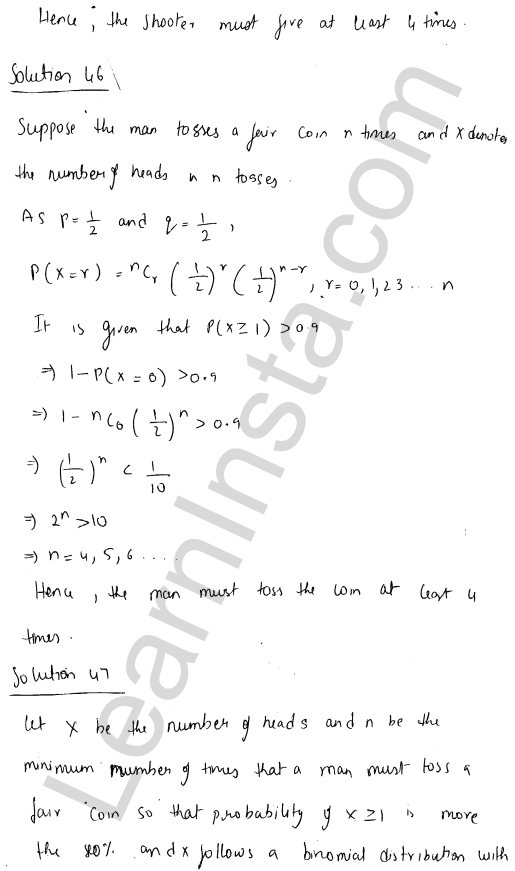 Hence, the shooter must fire at least 4 times.
Solution 46
Suppose the man tosses a fair coin n times and X denotes
the number of heads in n tosses.
As p = 1/2 and q = 1/2,
P(X=r) = nCr (1/2)^r (1/2)^n-r, r = 0, 1, 2 3 .... n
It is given that P(X ≥ 1) > 0.9
⇒ 1 - P(x = 0) > 0.9
⇒ 1 - nC0 (1/2)^n > 0.9
⇒ (1/2)^n < 1/10
⇒ 2^n > 10
⇒ n = 4, 5, 6 ....
Hence, the man must toss the coin at least 4
times.
Solution 47
Let X be the number of heads and n be the
minimum number of times that a man must toss a
fair coin so that probability of X ≥ 1 is more
the 80% and x follows a binomial distribution with
LearnInsta.com